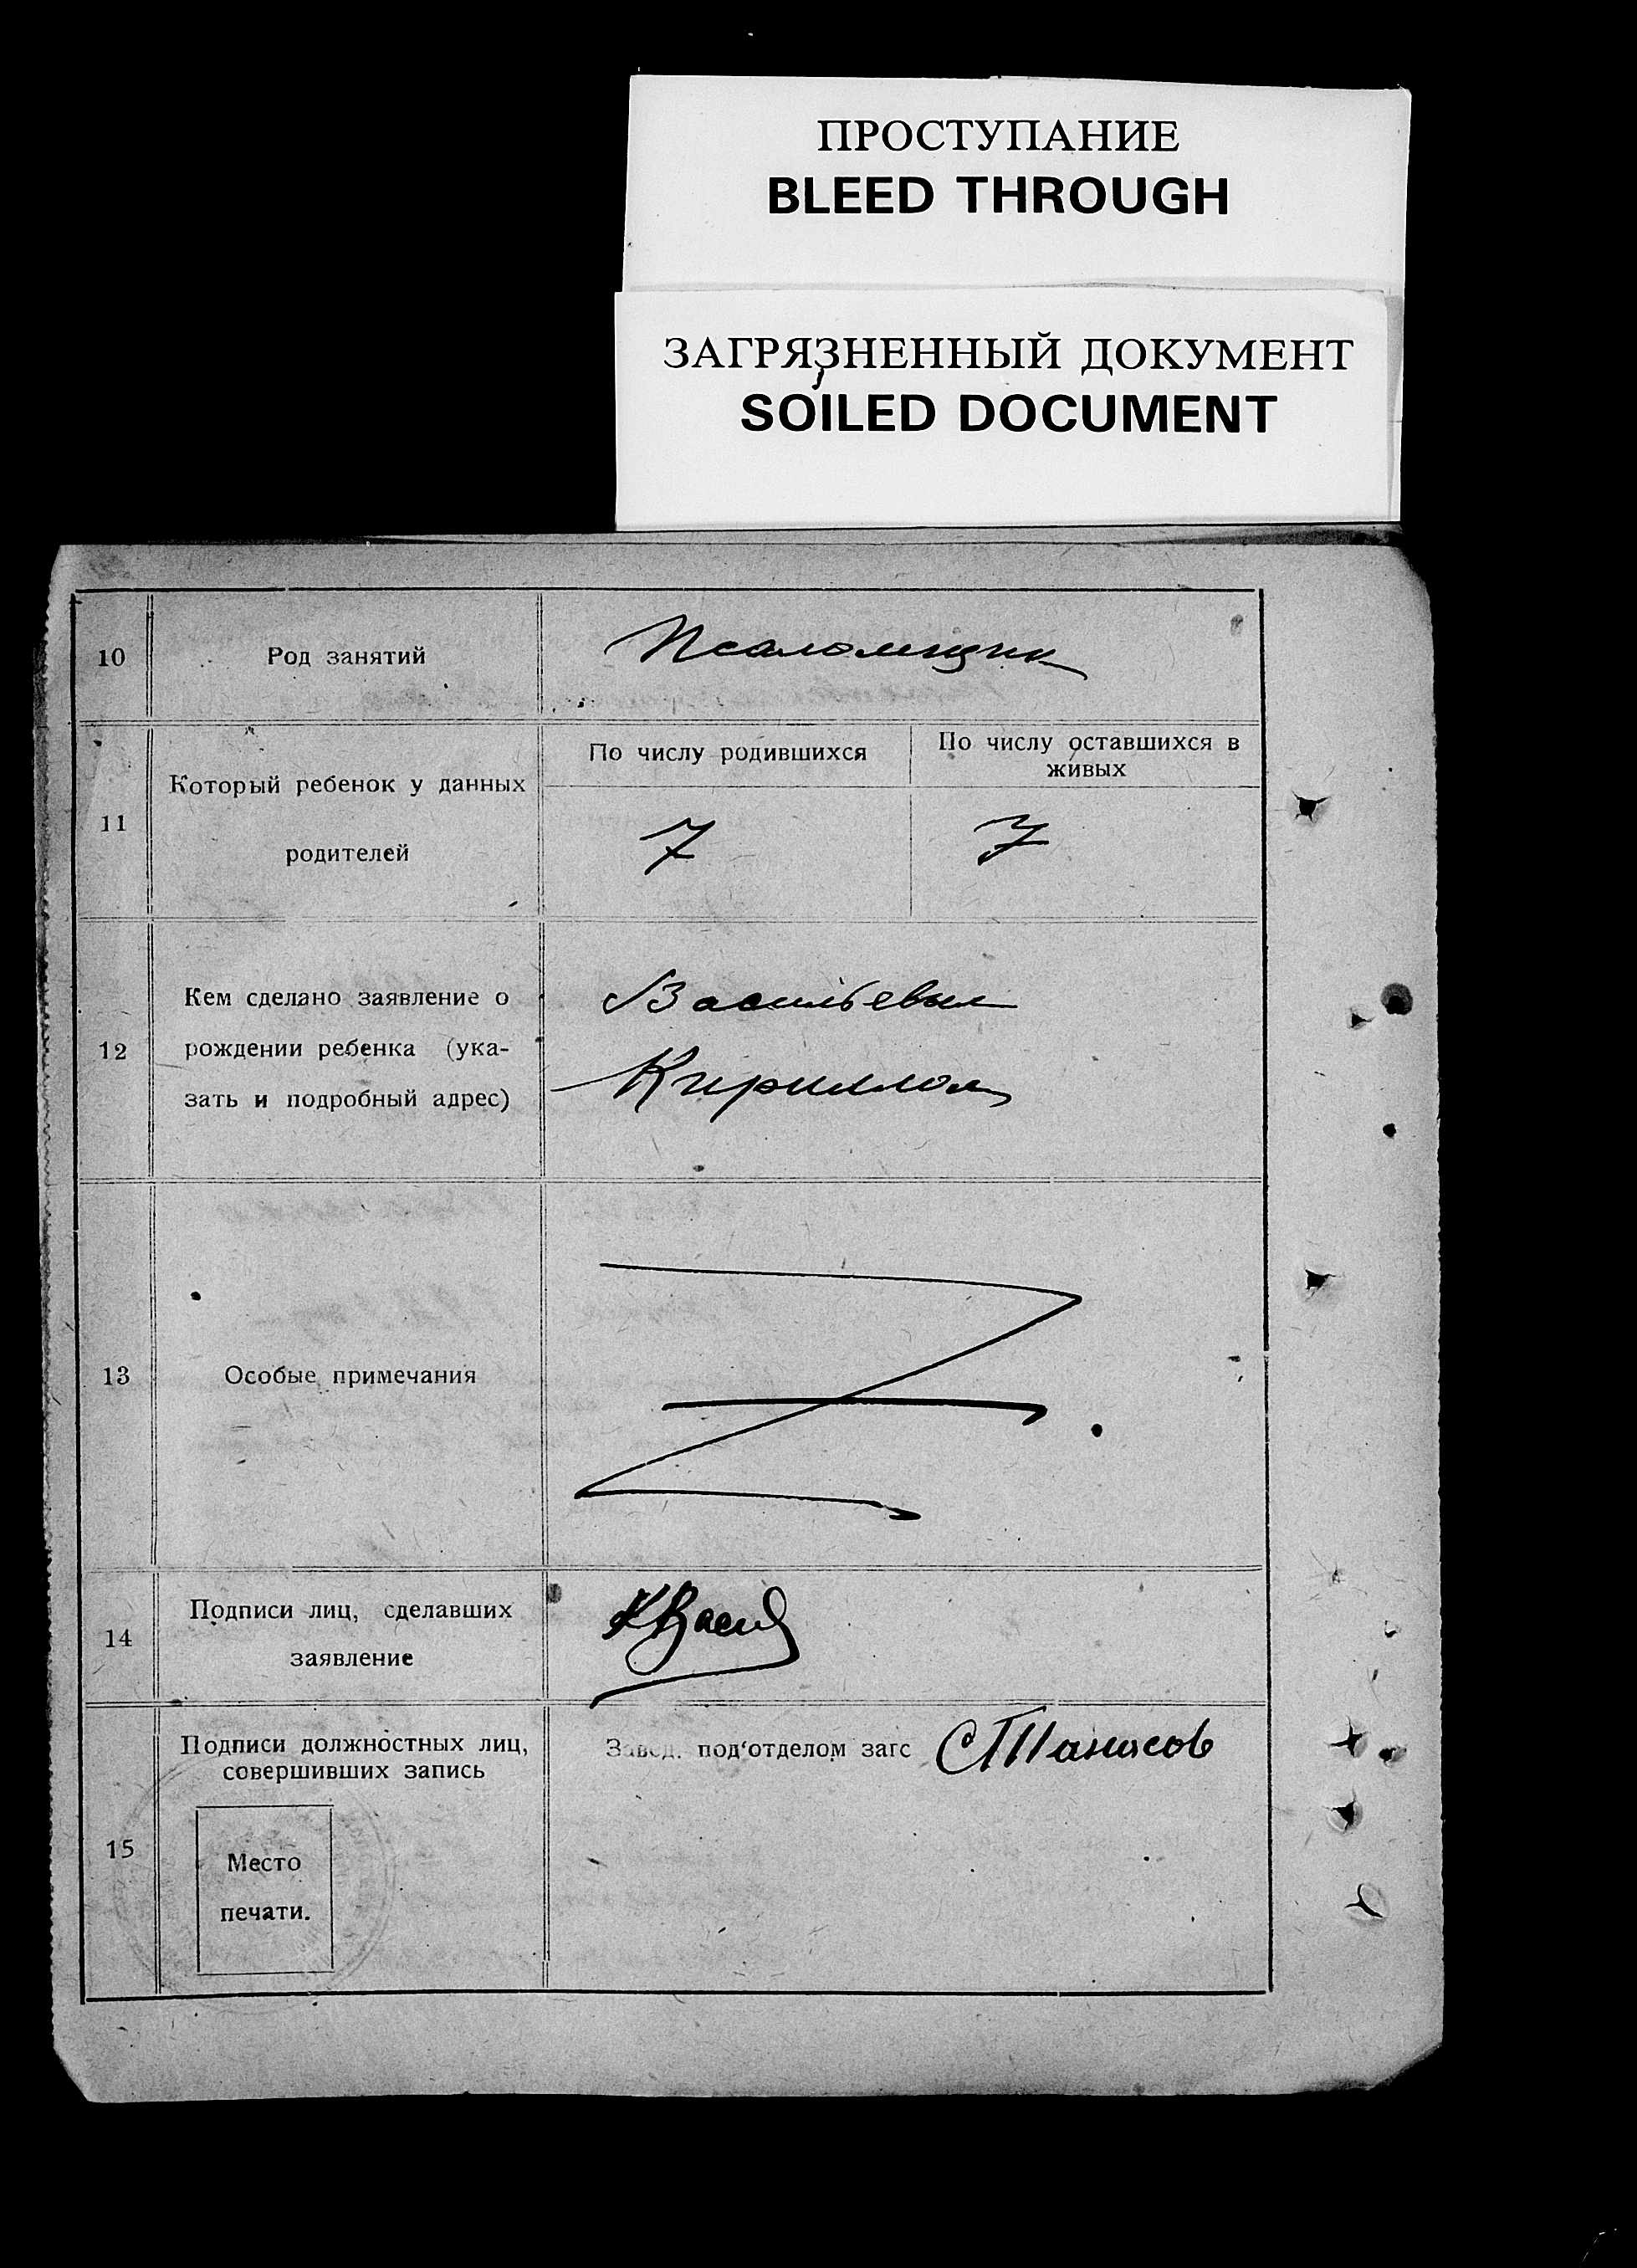 ПРОСТУПАНИЕ
BLEED THROUGH
ЗАГРЯЗНЕННЫЙ ДОКУМЕНТ
SOILED DOCUMENT
10
Род занятий
Псаломщик
11
Который ребенок у данных
родителей
По числу родившихся
По числу оставшихся в
живых
7
7
12
Кем сделано заявление о
рождении ребенка (ука-
зать и подробный адрес)
Васильевым
Кириллом
13
Особые примечания
14
Подписи лиц, сделавших
заявление
КВасил
15
Подписи должностных лиц,
совершивших запись
Место
печати.
Завед. под'отделом загс